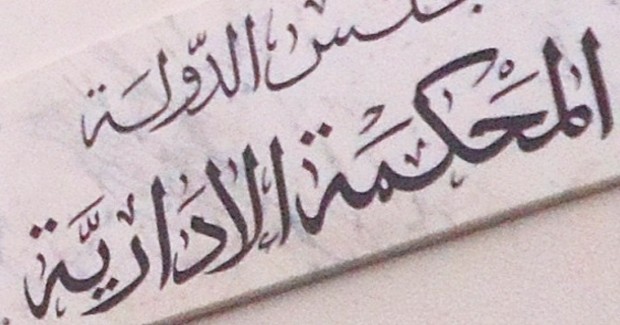 مجلس الدّولة
المَحكَمَة الإدَاريَّة